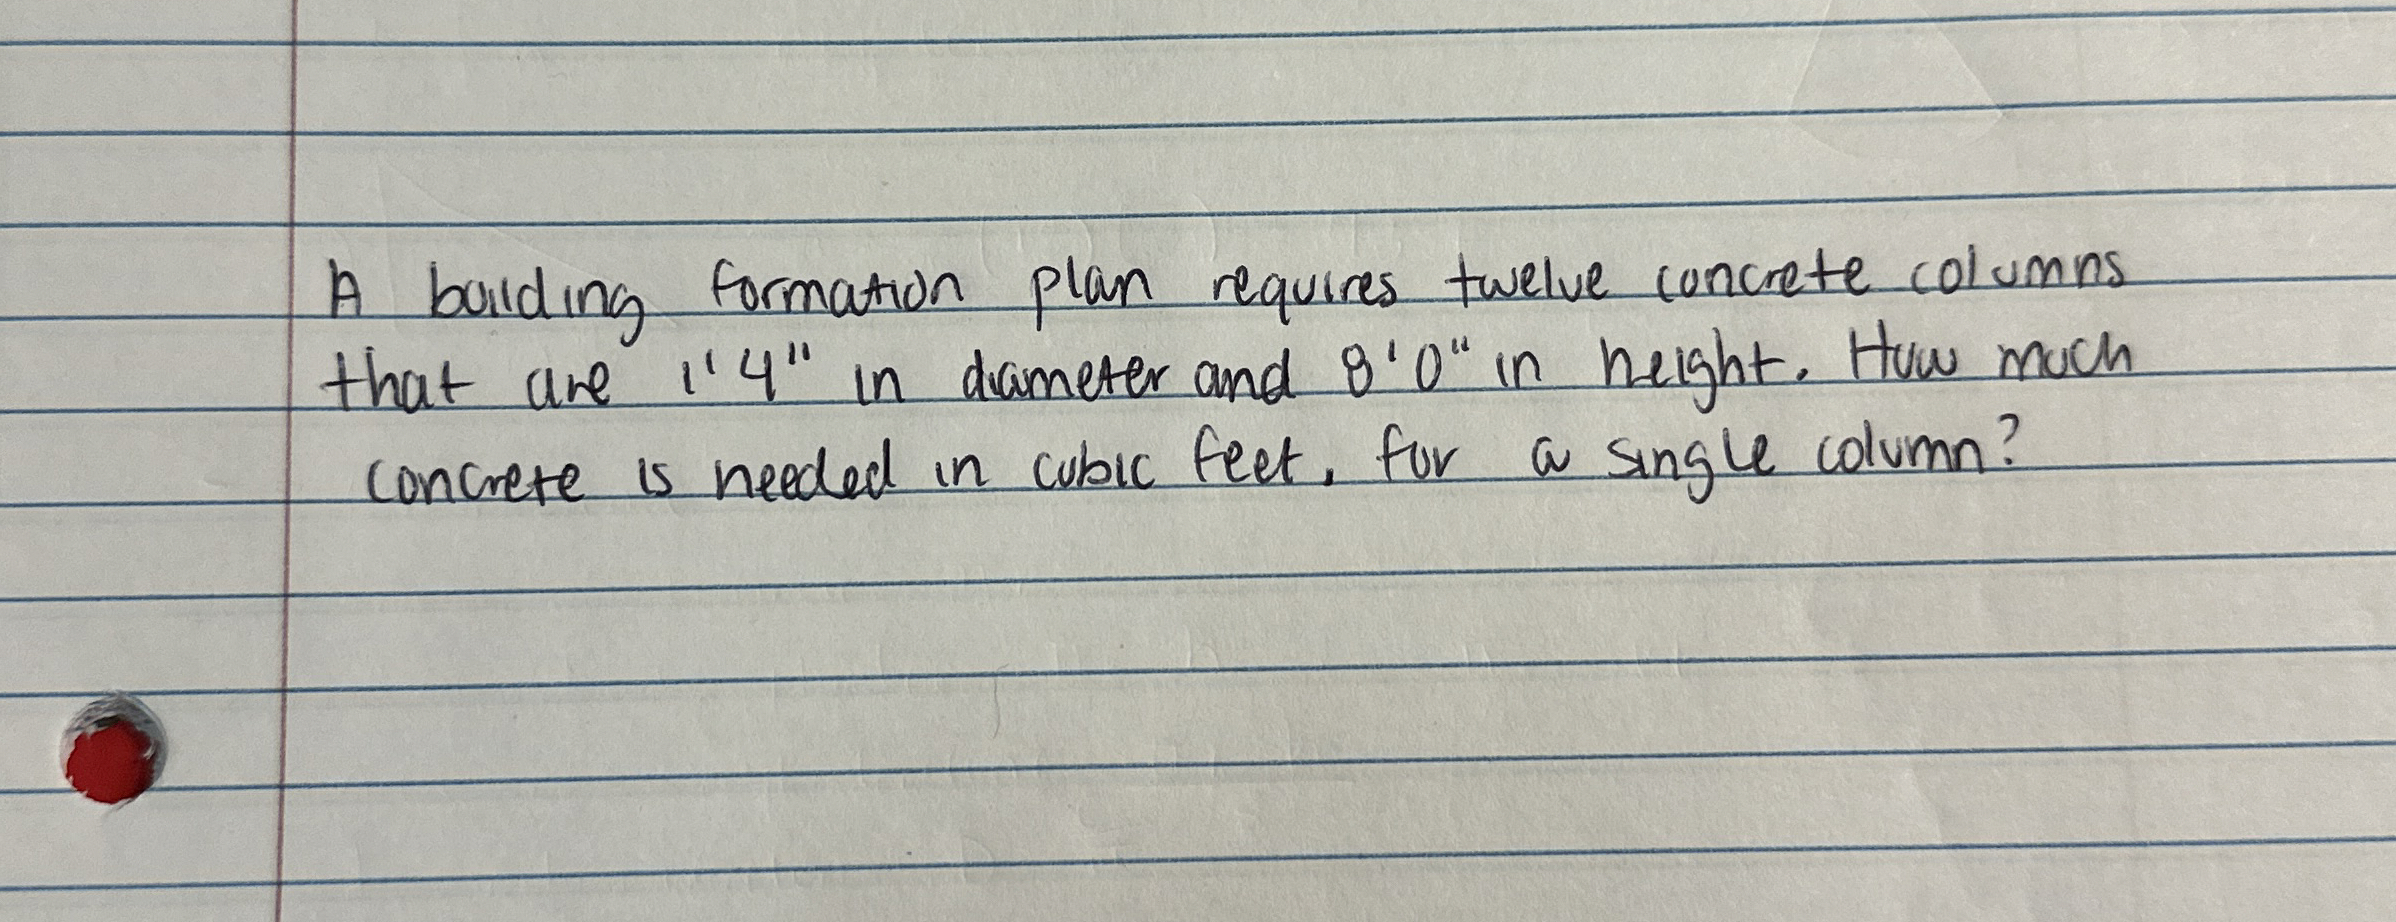 A building formation plan requires twelve concrete columns
that are 1'4" in diameter and 8'0" in height. How much
concrete is needed in cubic feet, for a single column?